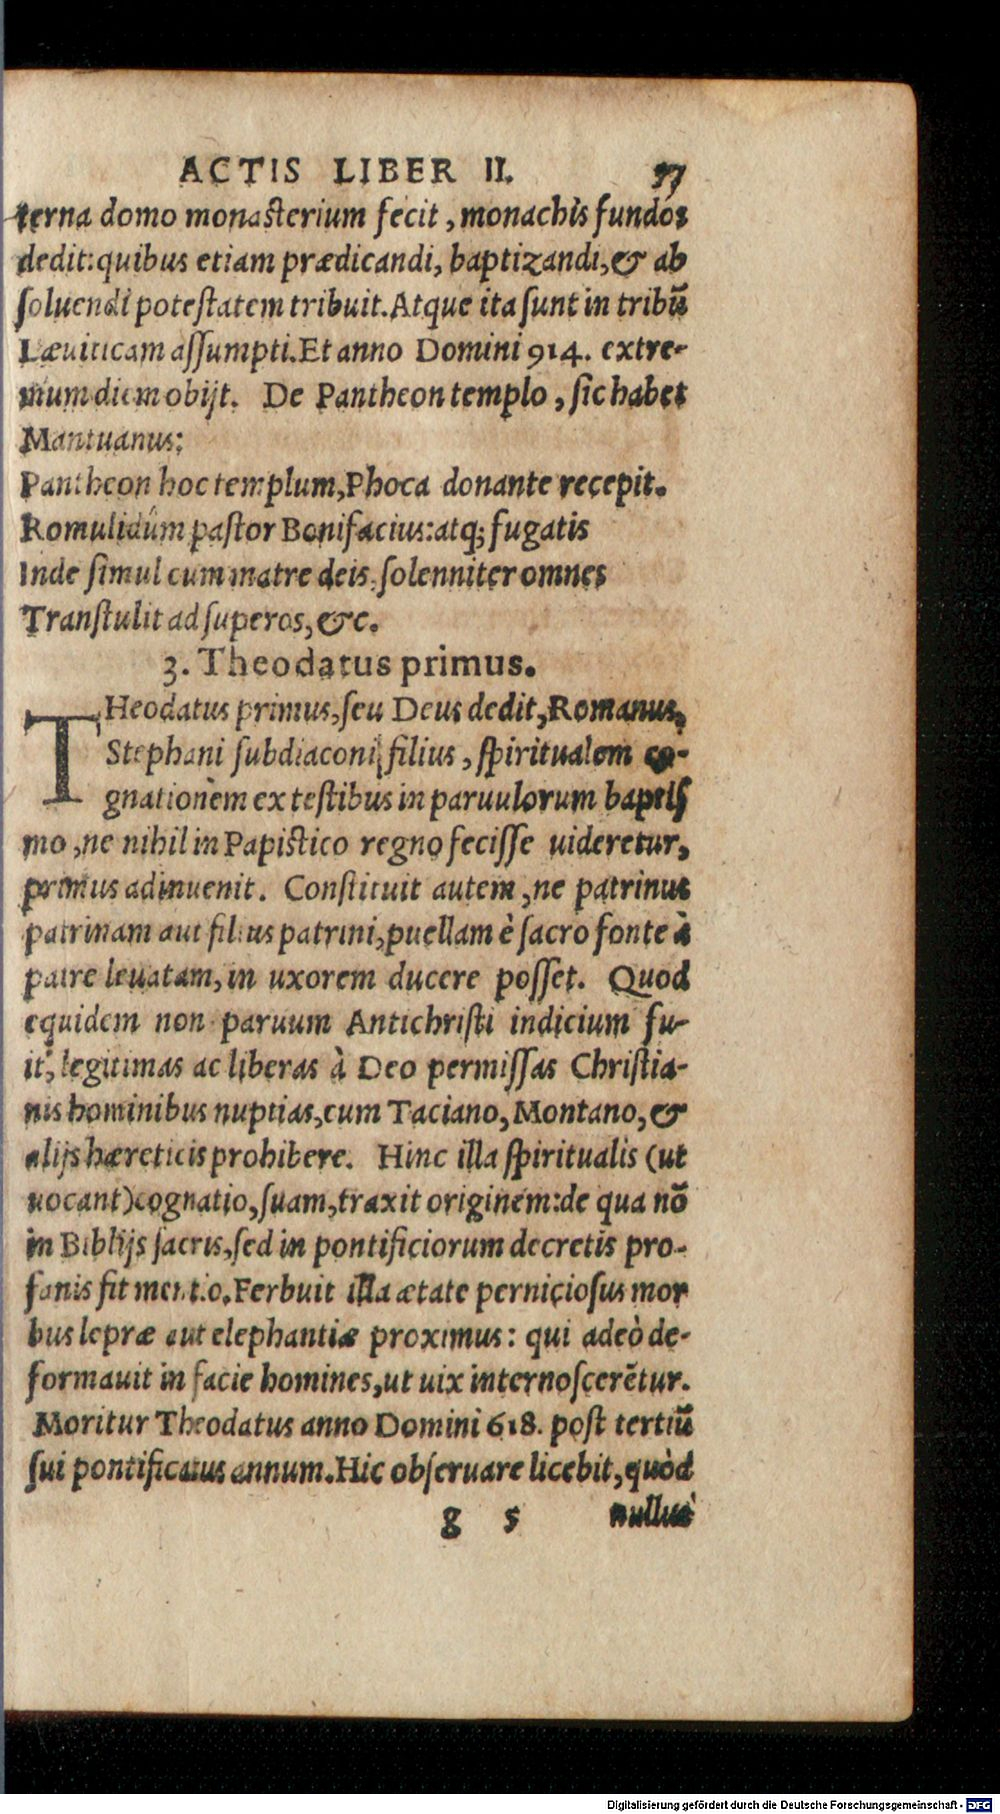 ACTIS LIBER II. 57
terna domo monasterium fecit, monachis fundos
dedit: quibus etiam prædicandi, baptizandi, & ab
soluendi potestatem tribuit. Atque ita sunt in tribū
Læuiticam assumpti. Et anno Domini 914. extre-
mum diem obijt. De Pantheon templo, sic habet
Mantuanus:
Pantheon hoc templum, Phoca donante recepit.
Romulidûm pastor Bonifacius: atq; fugatis
Inde simul cum matre deis, solenniter omnes
Transtulit ad superos, &c.
3. Theodatus primus.
THeodatus primus, seu Deus dedit, Romanus,
Stephani subdiaconi filius, spiritualem co-
gnationèm ex testibus in paruulorum baptis
mo, ne nihil in Papistico regno fecisse uideretur,
primus adinuenit. Constituit autem, ne patrinus
patrinam aut filius patrini, puellam è sacro fonte à
patre leuatam, in uxorem ducere posset. Quod
equidem non paruum Antichristi indicium fu-
it, legitimas ac liberas à Deo permissas Christia-
nis hominibus nuptias, cum Taciano, Montano, &
alijs hæreticis prohibere. Hinc illa spiritualis (ut
uocant) cognatio, suam, traxit originem: de qua nō
in Biblijs sacris, sed in pontificiorum decretis pro-
fanis fit mentio. Ferbuit illa ætate perniciosus mor
bus lepræ aut elephantiæ proximus: qui adeò de-
formauit in facie homines, ut uix internoscerētur.
Moritur Theodatus anno Domini 618. post tertiū
sui pontificatus annum. Hic obseruare licebit, quòd
g 5 nullus
Digitalisierung gefördert durch die Deutsche Forschungsgemeinschaft - DFG